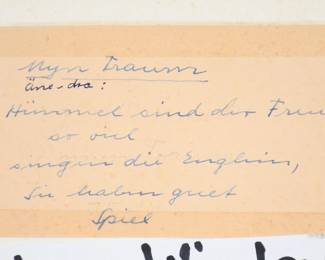 Myn Traum
äne-dra:
Himmel sind der Freu
so viel
singen die Englein,
Sie habm guet
Spiel